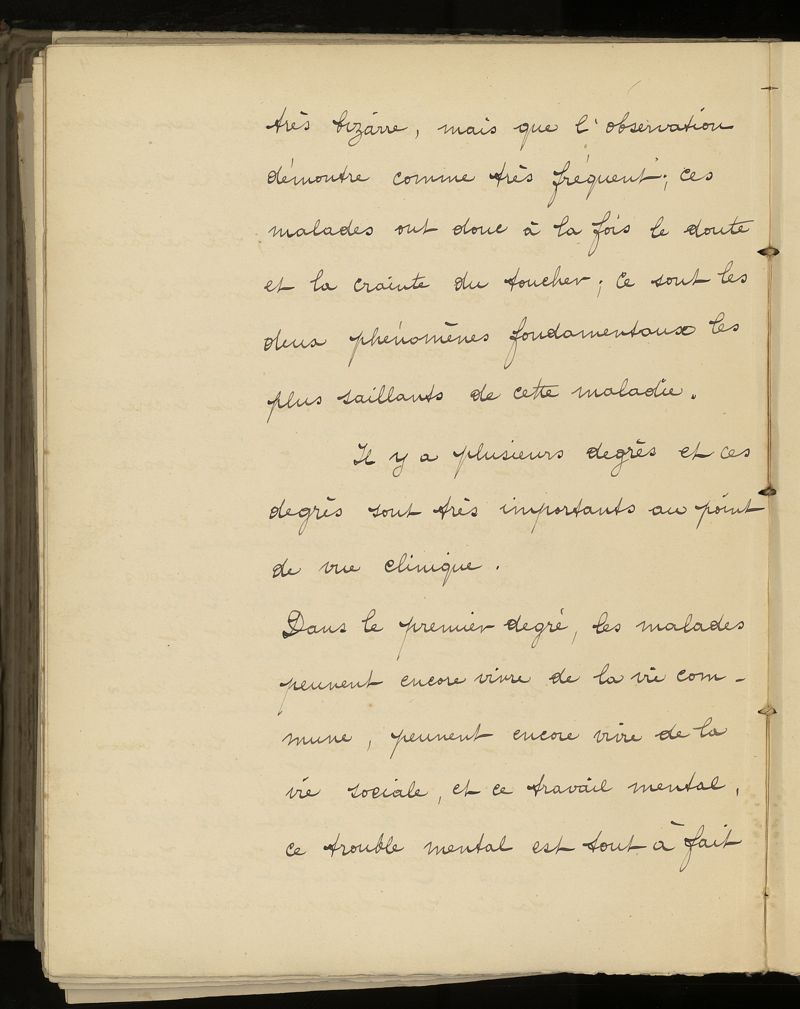 très bizarre, mais que l'observation
démontre comme très fréquent; ces
malades ont donc à la fois le doute
et la crainte du toucher; ce sont les
deux phénomènes fondamentaux les
plus saillants de cette maladie.
Il y a plusieurs degrès et ces
degrès sont très importants au point
de vue clinique.
Dans le premier degré, les malades
peuvent encore vivre de la vie com-
mune, peuvent encore vivre de la
vie sociale, et ce travail mental,
ce trouble mental est tout à fait